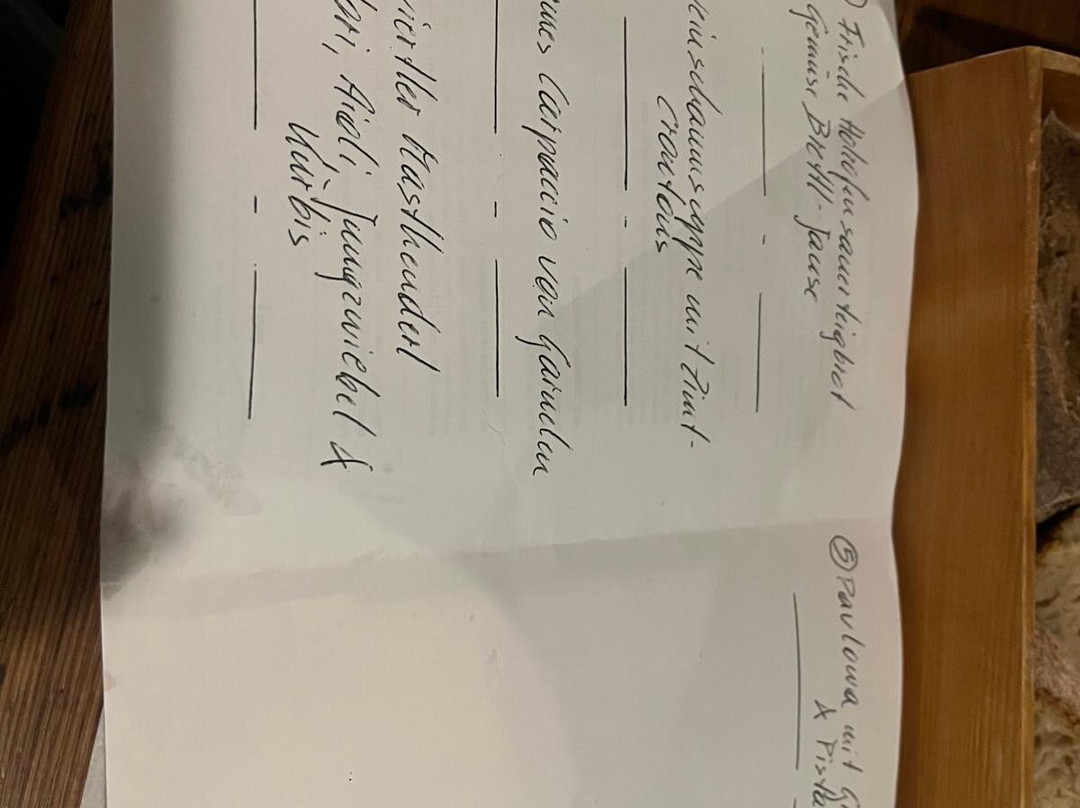 Frische Holzofensauerteigbrot
Gemüse Brettl-Jause
einschaumsuppe mit Zimt-
croutons
Carpaccio von Garnelen
viertler Masthenderl
Aioli, Jungzwiebel &
Kürbis
⑤ Pavlowa mit
& Pista